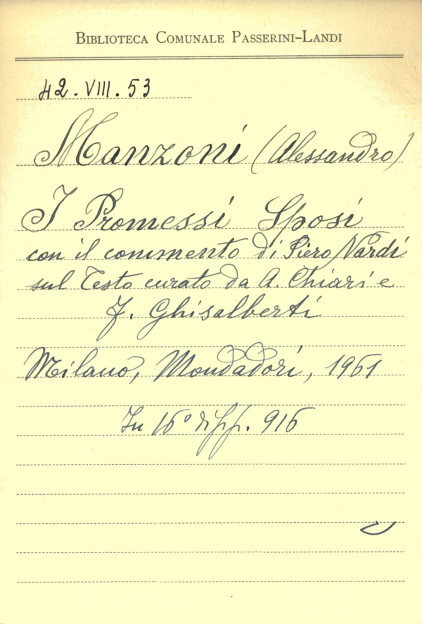 BIBLIOTECA COMUNALE PASSERINI-LANDI
42.VIII.53
Manzoni (Alessandro)
I Promessi Sposi
con il commento di Piero Nardi
sul Testo curato da A. Chiari e
F. Ghisalberti
Milano, Mondadori, 1961
In 16° di pp. 916